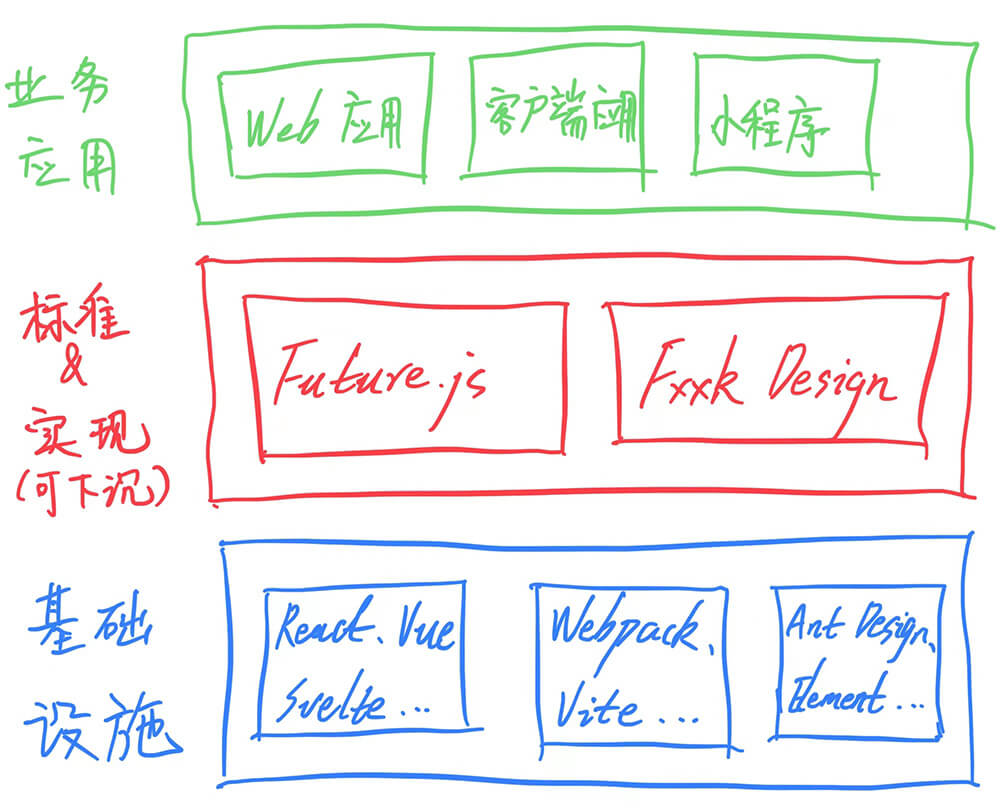 业务
应用
Web 应用
客户端应用
小程序
标准
&
实现
(可下沉)
Future.js
Fxxk Design
基础
设施
React、Vue
Svelte...
Webpack、
Vite...
Ant Design、
Element...